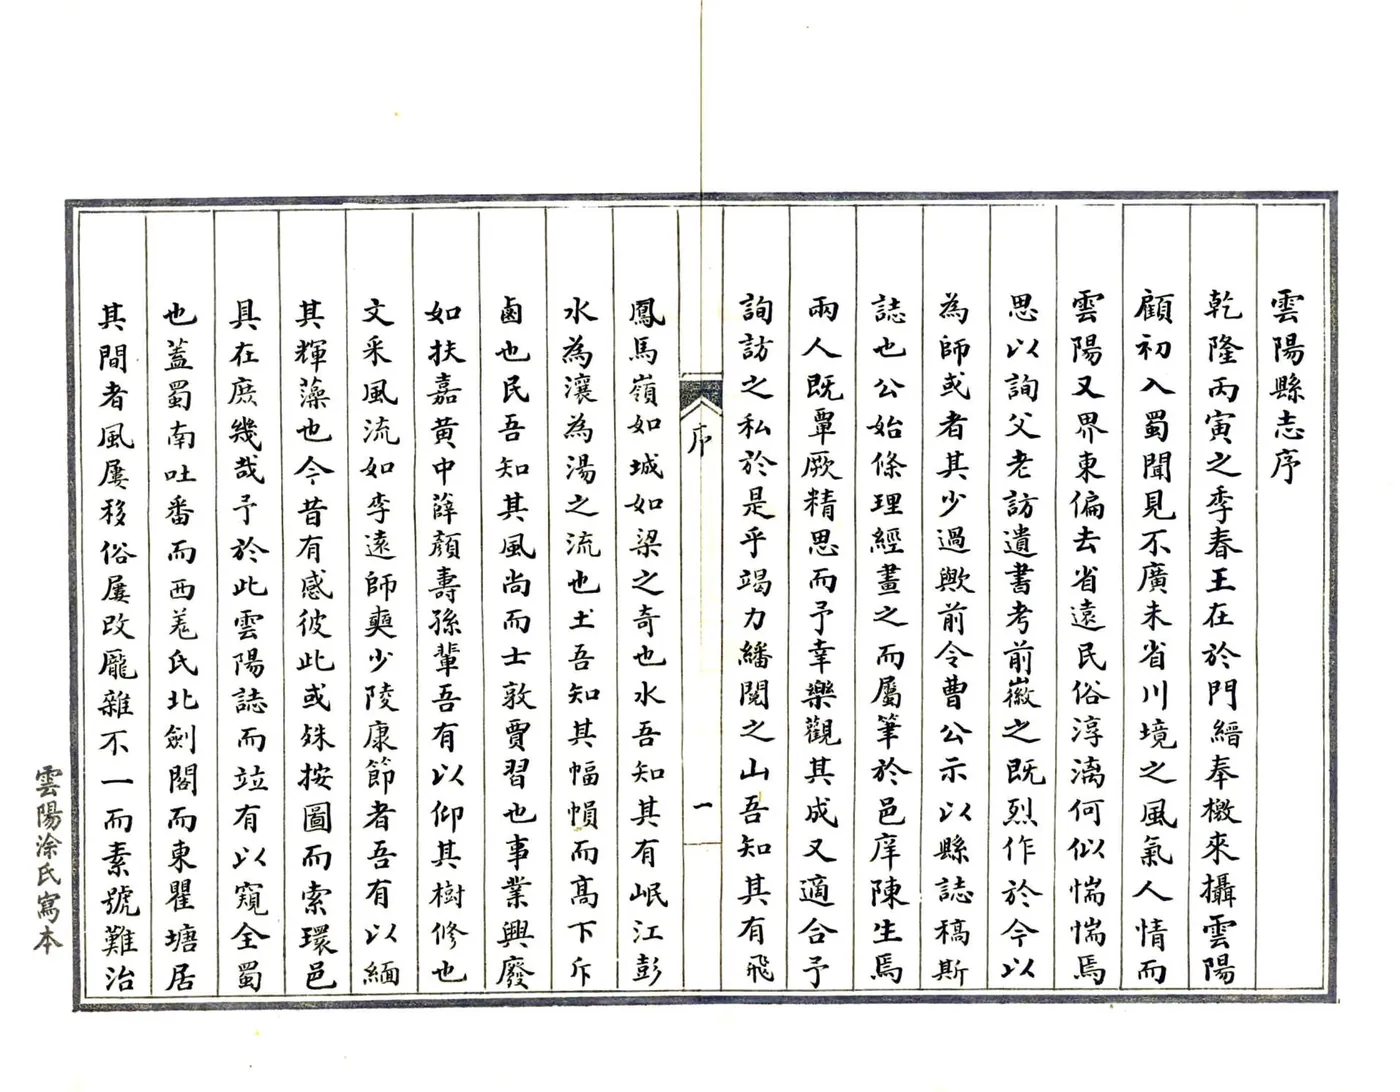 雲陽縣志序
乾隆丙寅之季春王在於門縉奉檄來攝雲陽
顧初入蜀聞見不廣未省川境之風氣人情而
雲陽又界東偏去省遠民俗淳漓何似惴惴焉
思以詢父老訪遺書考前徽之既烈作於今以
為師或者其少過歟前令曹公示以縣誌稿斯
誌也公始條理經畫之而屬筆於邑庠陳生焉
兩人既覃厥精思而予幸樂觀其成又適合予
詢訪之私於是乎竭力繙閱之山吾知其有飛
序
一
鳳馬嶺如城如梁之奇也水吾知其有岷江彭
水為瀼為湯之流也土吾知其幅幁而高下斥
鹵也民吾知其風尚而士敦賈習也事業興廢
如扶嘉黃中薛顏壽孫輩吾有以仰其樹修也
文采風流如李遠師奭少陵康節者吾有以緬
其輝藻也今昔有感彼此或殊按圖而索環邑
具在庶幾哉予於此雲陽誌而竝有以窺全蜀
也蓋蜀南吐番而西羌氐北劍閣而東瞿塘居
其間者風屢移俗屢改龐雜不一而素號難治
雲陽涂氏寫本